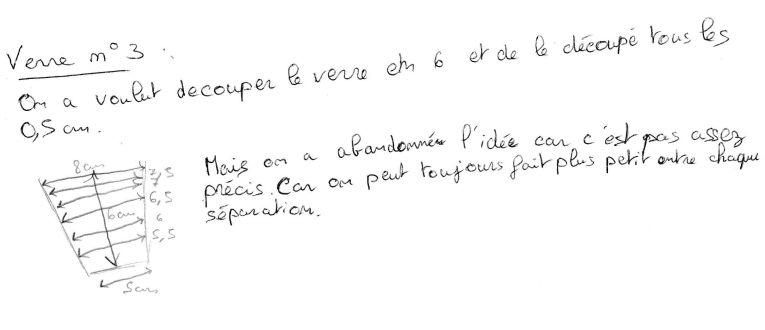 Verre n° 3 :
On a voulut decouper le verre en 6 et de le découpé tous les
0,5 cm.
Mais on a abandonnée l'idée car c'est pas assez
précis. Car on peut toujours fait plus petit entre chaque
séparation.
8cm
7,5
7
6,5
6cm
6
5,5
5cm